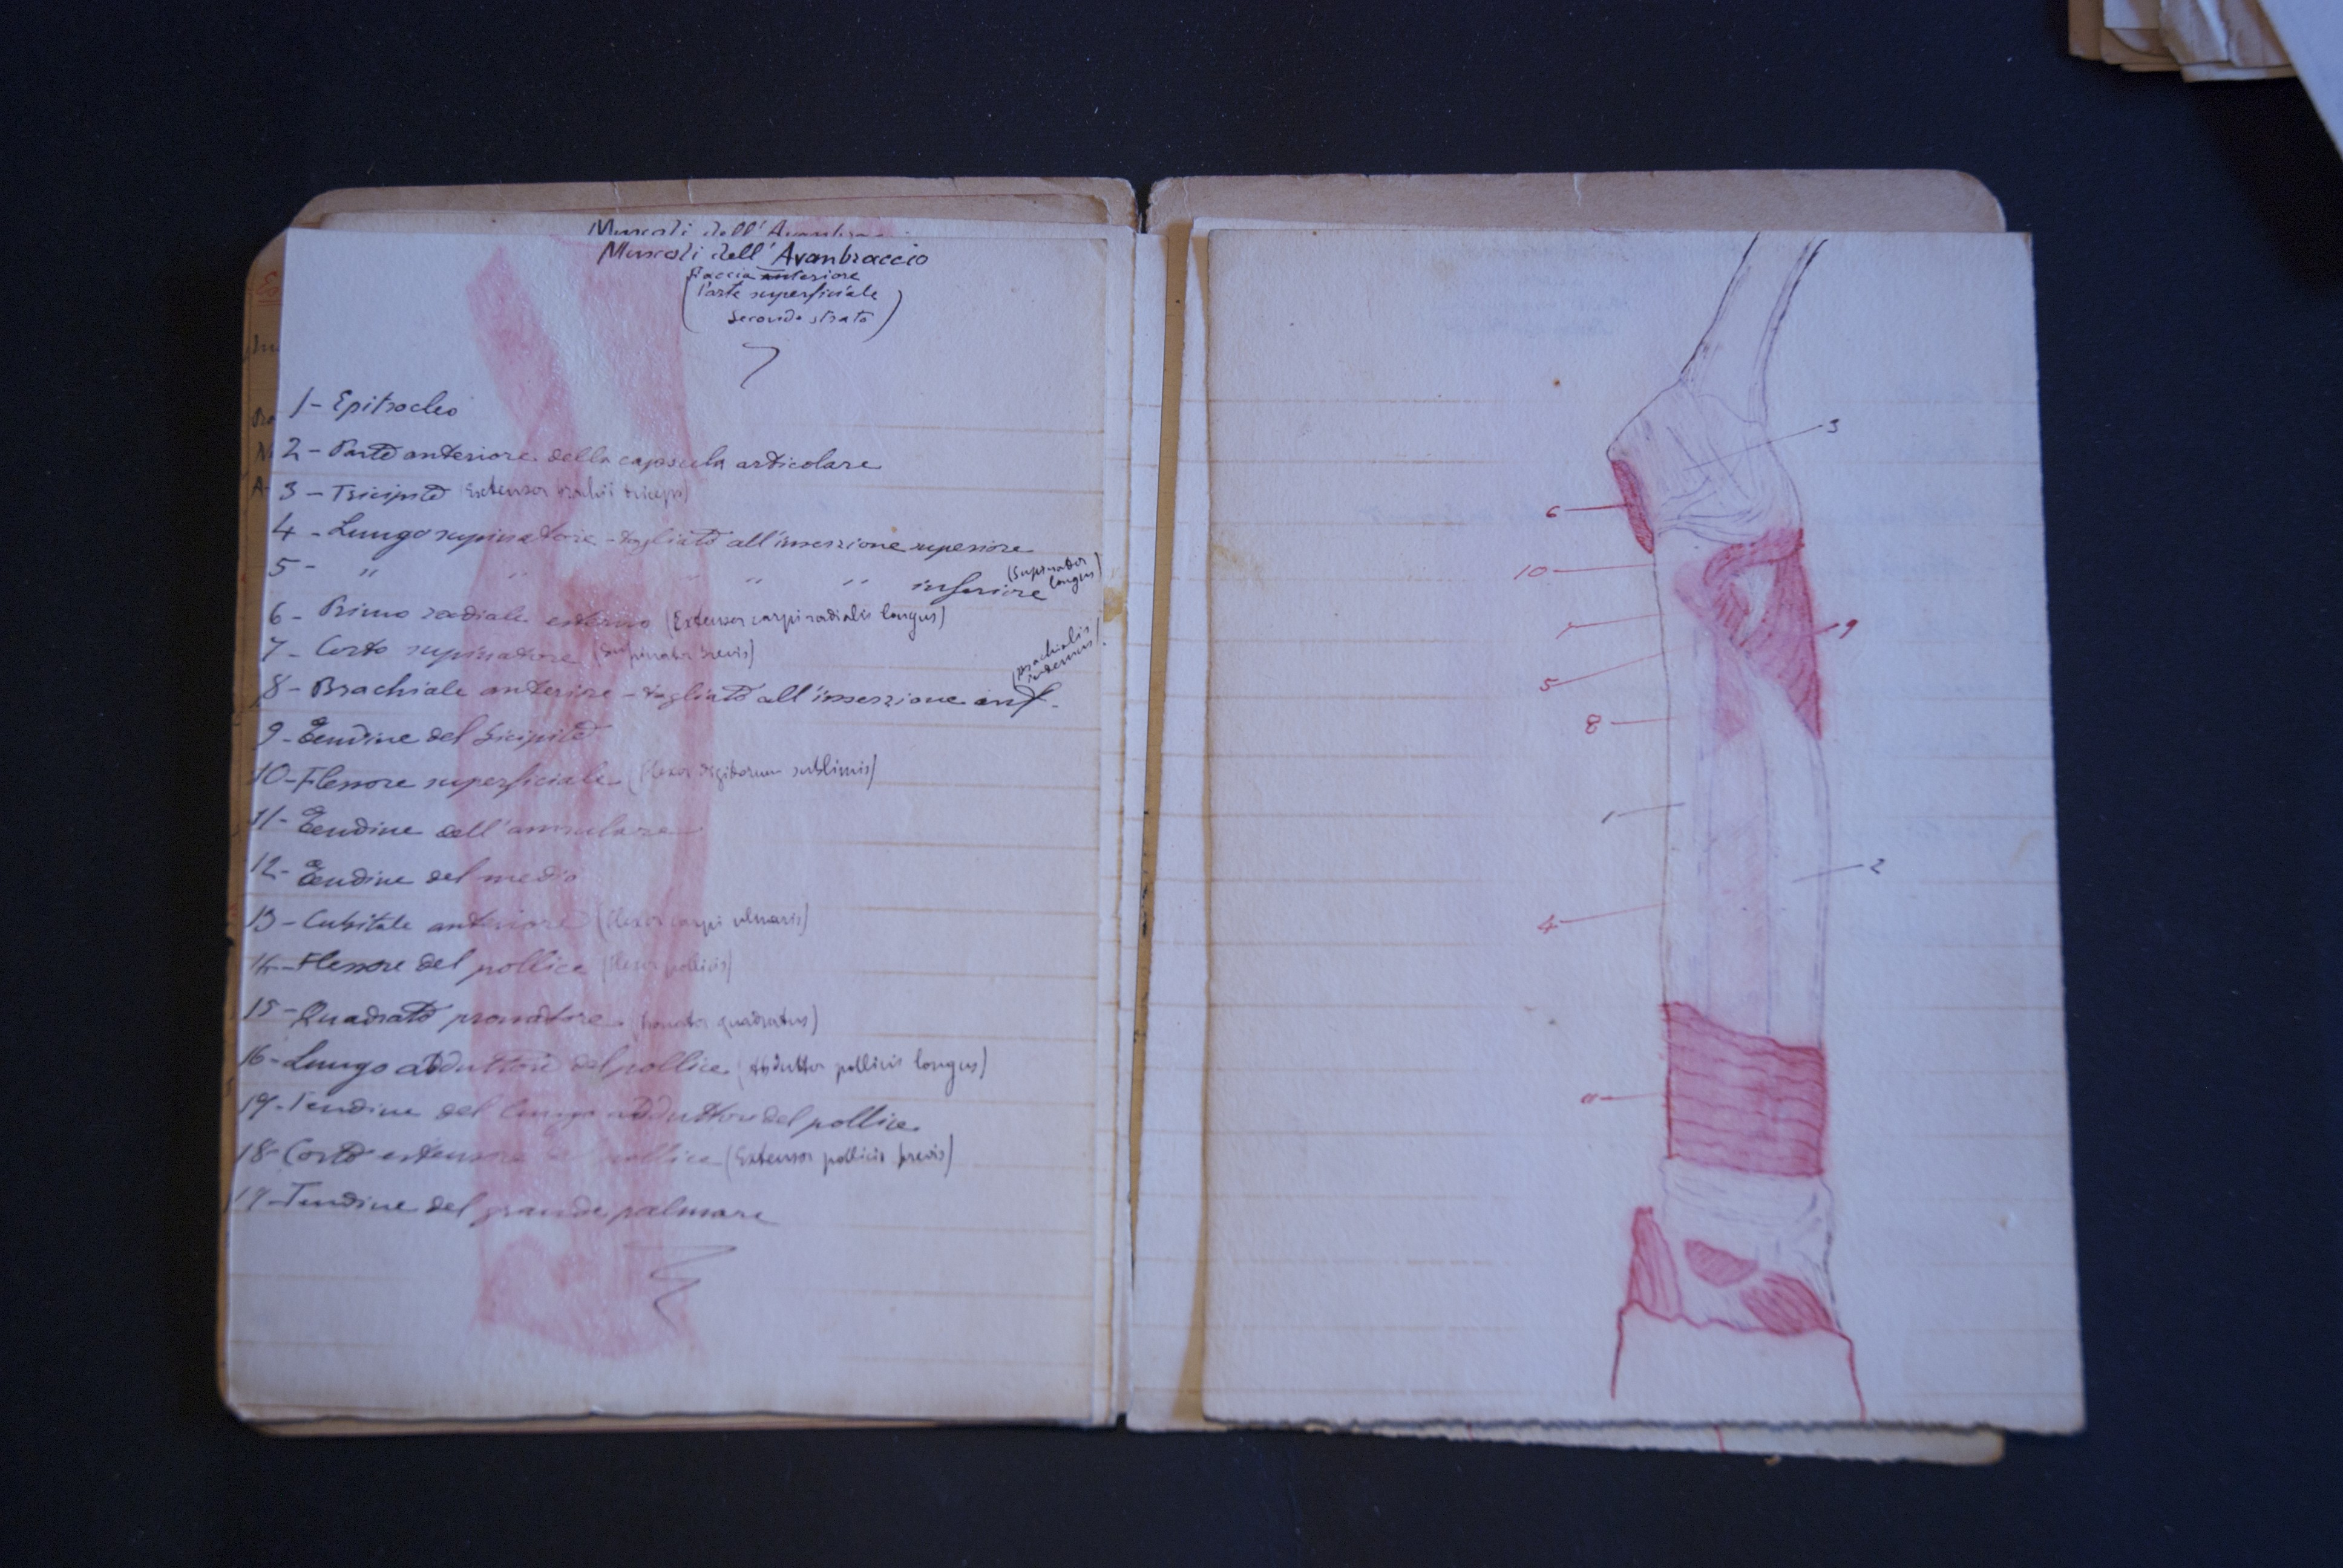 Muscoli dell'Avanbraccio
Muscoli dell'Avanbraccio
Faccia anteriore
(Parte superficiale
Secondo strato)
1- Epitroclea
2- Parte anteriore della capsula articolare
3- Tricipite (Extensor brachii triceps)
4- Lungo supinatore - tagliato all'inserzione superiore
5- " " " " " inferiore (Supinator longus)
6- Primo radiale esterno (Extensor carpi radialis longus)
7- Corto supinatore (Supinator brevis)
8- Brachiale anteriore - tagliato all'inserzione inf. (Brachialis internus)
9- Tendine del bicipite
10- Flessore superficiale (Flexor digitorum sublimis)
11- Tendine dell'annulare
12- Tendine del medio
13- Cubitale anteriore (Flexor carpi ulnaris)
14- Flessore del pollice (flexor pollicis)
15- Quadrato pronatore (Pronator quadratus)
16- Lungo abduttore del pollice (Abduttor pollicis longus)
17- Tendine del lungo abduttore del pollice
18- Corto estensore del pollice (Extensor pollicis brevis)
19- Tendine del grande palmare
3
6
10
7
9
5
8
1
2
4